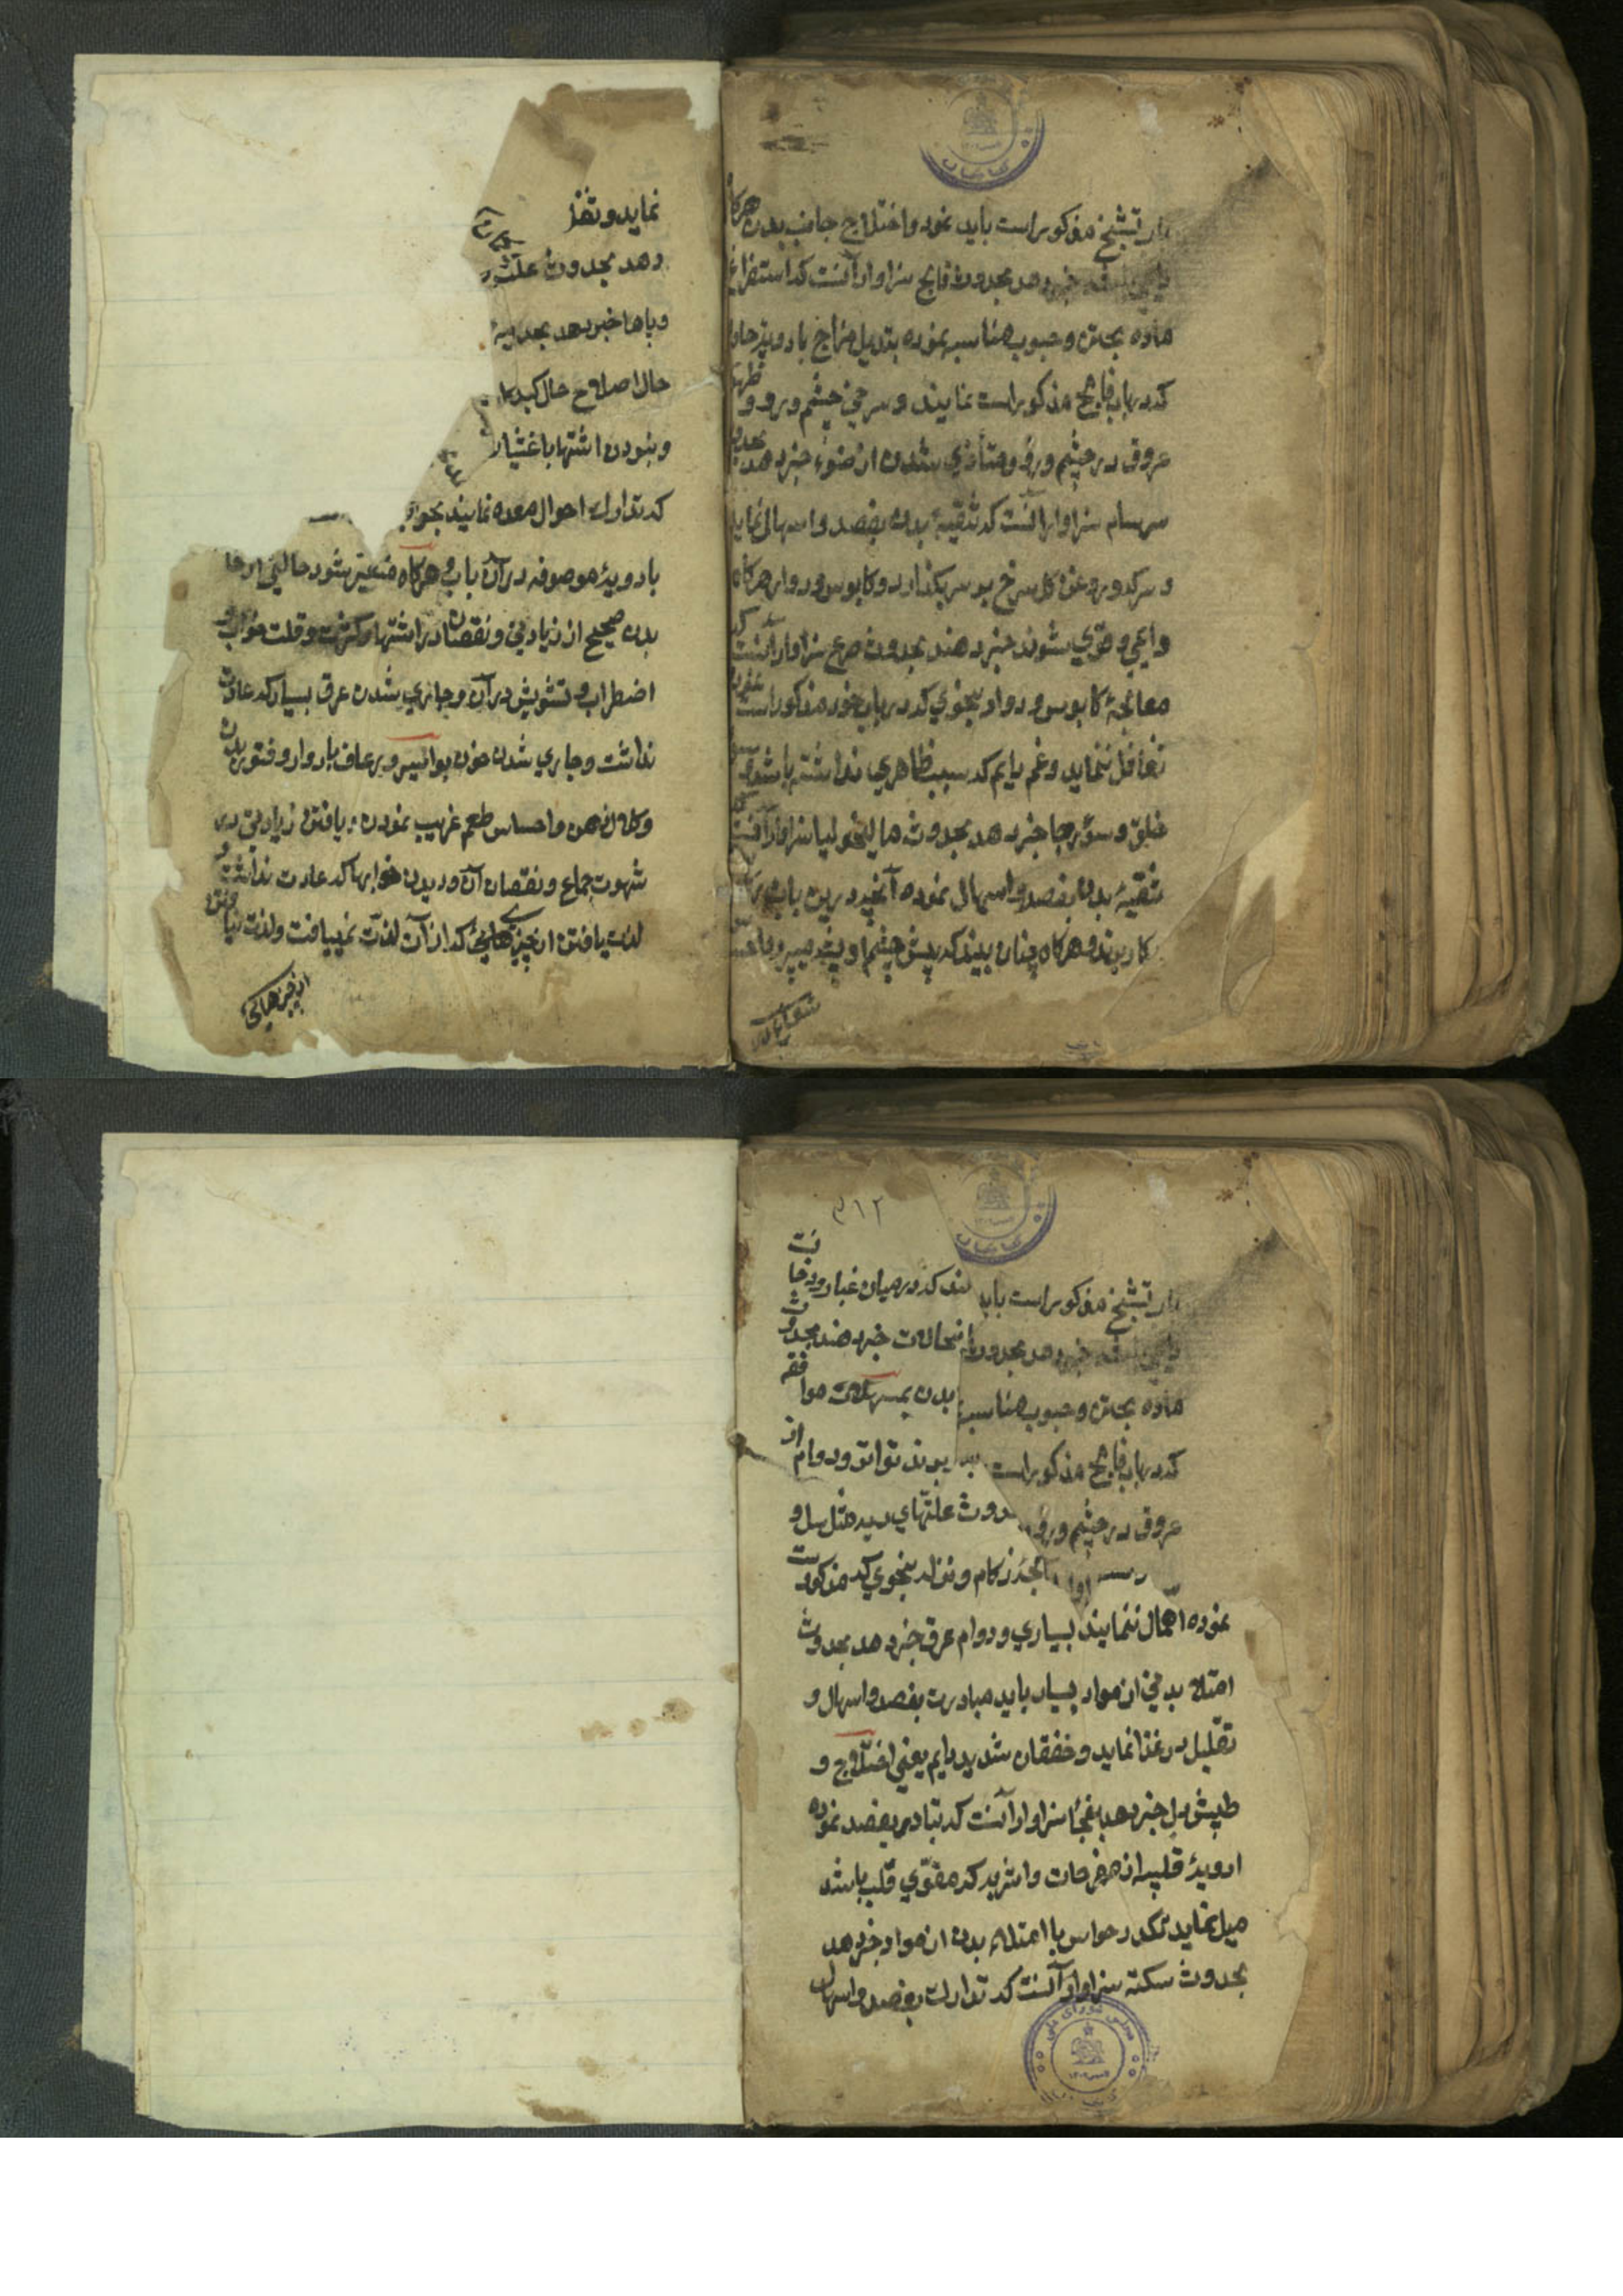 باب تشنج مذکور است باید نمود و اختلاج جانب بدن هرکاه
خبر دهد بحدوث فالج سزاوار آنست که استفراغ
ماده بحقن و حبوب مناسبه نموده بتدیل مزاج بادویه حاره
که در باب فالج مذکور است نمایند و سرخی چشم و رو و
عروق در چشم و رو و متأذی شدن از ضوء خبر دهد بحدوث
سرسام سزاوار آنست که تنقیهٔ بدن بفصد و اسهال نماید
و سرکه و روغن کل سرخ بر سر بکذارد و کابوس و دوار هرکاه
دایمی و قوی شوند خبر دهند بحدوث صرع سزاوار آنست که
معالجهٔ کابوس و دوار بنحوی که در باب خود مذکور است نموده
تغافل ننماید و غم دایم که سبب ظاهری نداشته باشد
خلق و سوء رجا خبر دهد بحدوث مالیخولیا سزاوار آنست
تنقیهٔ بدن بفصد و اسهال نموده آنچه در این باب
کار بندد و هرکاه چنان بیند که پیش چشم او پشه میپرد
نماید و تغذ
دهد بحدوث علت
و پاها خبر دهد بحد
حال اصلاح حال کبد
و نبودن اشتها با غثیان
که تدارک احوال معده نمایند بجو
بادویهٔ موصوفه در آن باب و هرکاه متغیر شود حالتی از حا
بدن صحیح از زیادتی و نقصان در اشتها و کثرت و قلت خواب و
اضطراب و تشویش در آن و جاری شدن عرق بسیار که عادت
نداشت و جاری شدن خون بواسیر و رعاف یا دوار و فتور بدن
و کلال ذهن و احساس طعم غریب نمودن و یافتن زیادتی در
شهوت جماع و نقصان آن و دیدن خوابها که عادت نداشت و
لذت یافتن از چیزهائی که از آن لذت نمییافت و لذت نیافتن
از چیزهائی
۹۱۲
که در میان غبار و دخانست
باب تشنج مذکور است باید
اینحالات خبر دهند بحدوث
بدن بمسهلات موافقه
ماده بحقن و حبوب مناسبه
بندند تواتر و دوام از
که در باب فالج مذکور است
حدوث علتهای ردیه مثل سل و
عروق در چشم و رو
زکام و نزله بنحوی که مذکور است
نموده اهمال ننمایند بسیاری و دوام عرق خبر دهد بحدوث
امتلاء بدنی از مواد بسیار باید مبادرت بفصد و اسهال و
تقلیل در غذا نماید و خفقان شدید دایم یعنی اختلاج و
طپش دل خبر دهد بفجأ سزاوار آنست که تبادر بفصد نموده
ادویهٔ قلبیه از مفرحات و اشربه که مقوی قلب باشد
میل نماید تکدر حواس با امتلاء بدن از مواد خبر دهد
بحدوث سکته سزاوار آنست که تدارک بفصد و اسهال
مجلس شورای ملی